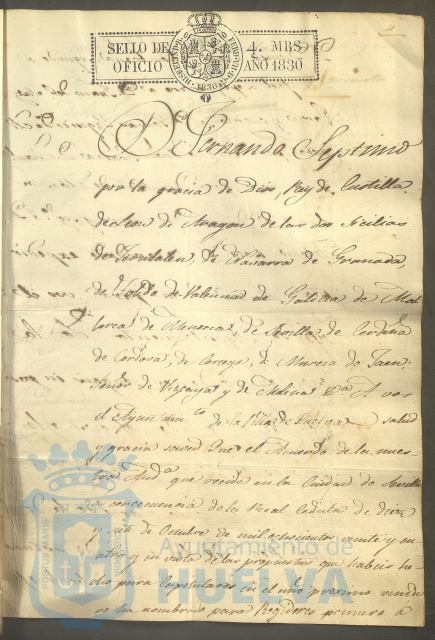 SELLO DE OFICIO
4. MRS AÑO 1830
HISPANIAR
1830
Dn Fernando Septimo
por la gracia de Dios, Rey de Castilla
de Leon de Aragon de las dos Sicilias
de Jerusalen de Navarra de Granada,
de Toledo de Valencia de Galicia de Mal
lorca de Menorca, de Sevilla de Cerdeña
de Cordova, de Corcega, de Murcia de Jaen
Señor de Vizcaya y de Molina &a A vos
el Ayuntamto de la Villa de Huelva salud
y gracia saved Que el Acuerdo de la nues
tra Auda que reside en la Ciudad de Sevilla
concecuencia de la Real Cedula de diez
y siete de Octubre de mil ochocientos veinte y cu
atro y en vista de las propuestas que habeis he
cho para Capitulares en el año proximo venide
ro ha nombrado para Regidores primero a
PORTUS MARIS
Ayuntamiento de
HUELVA